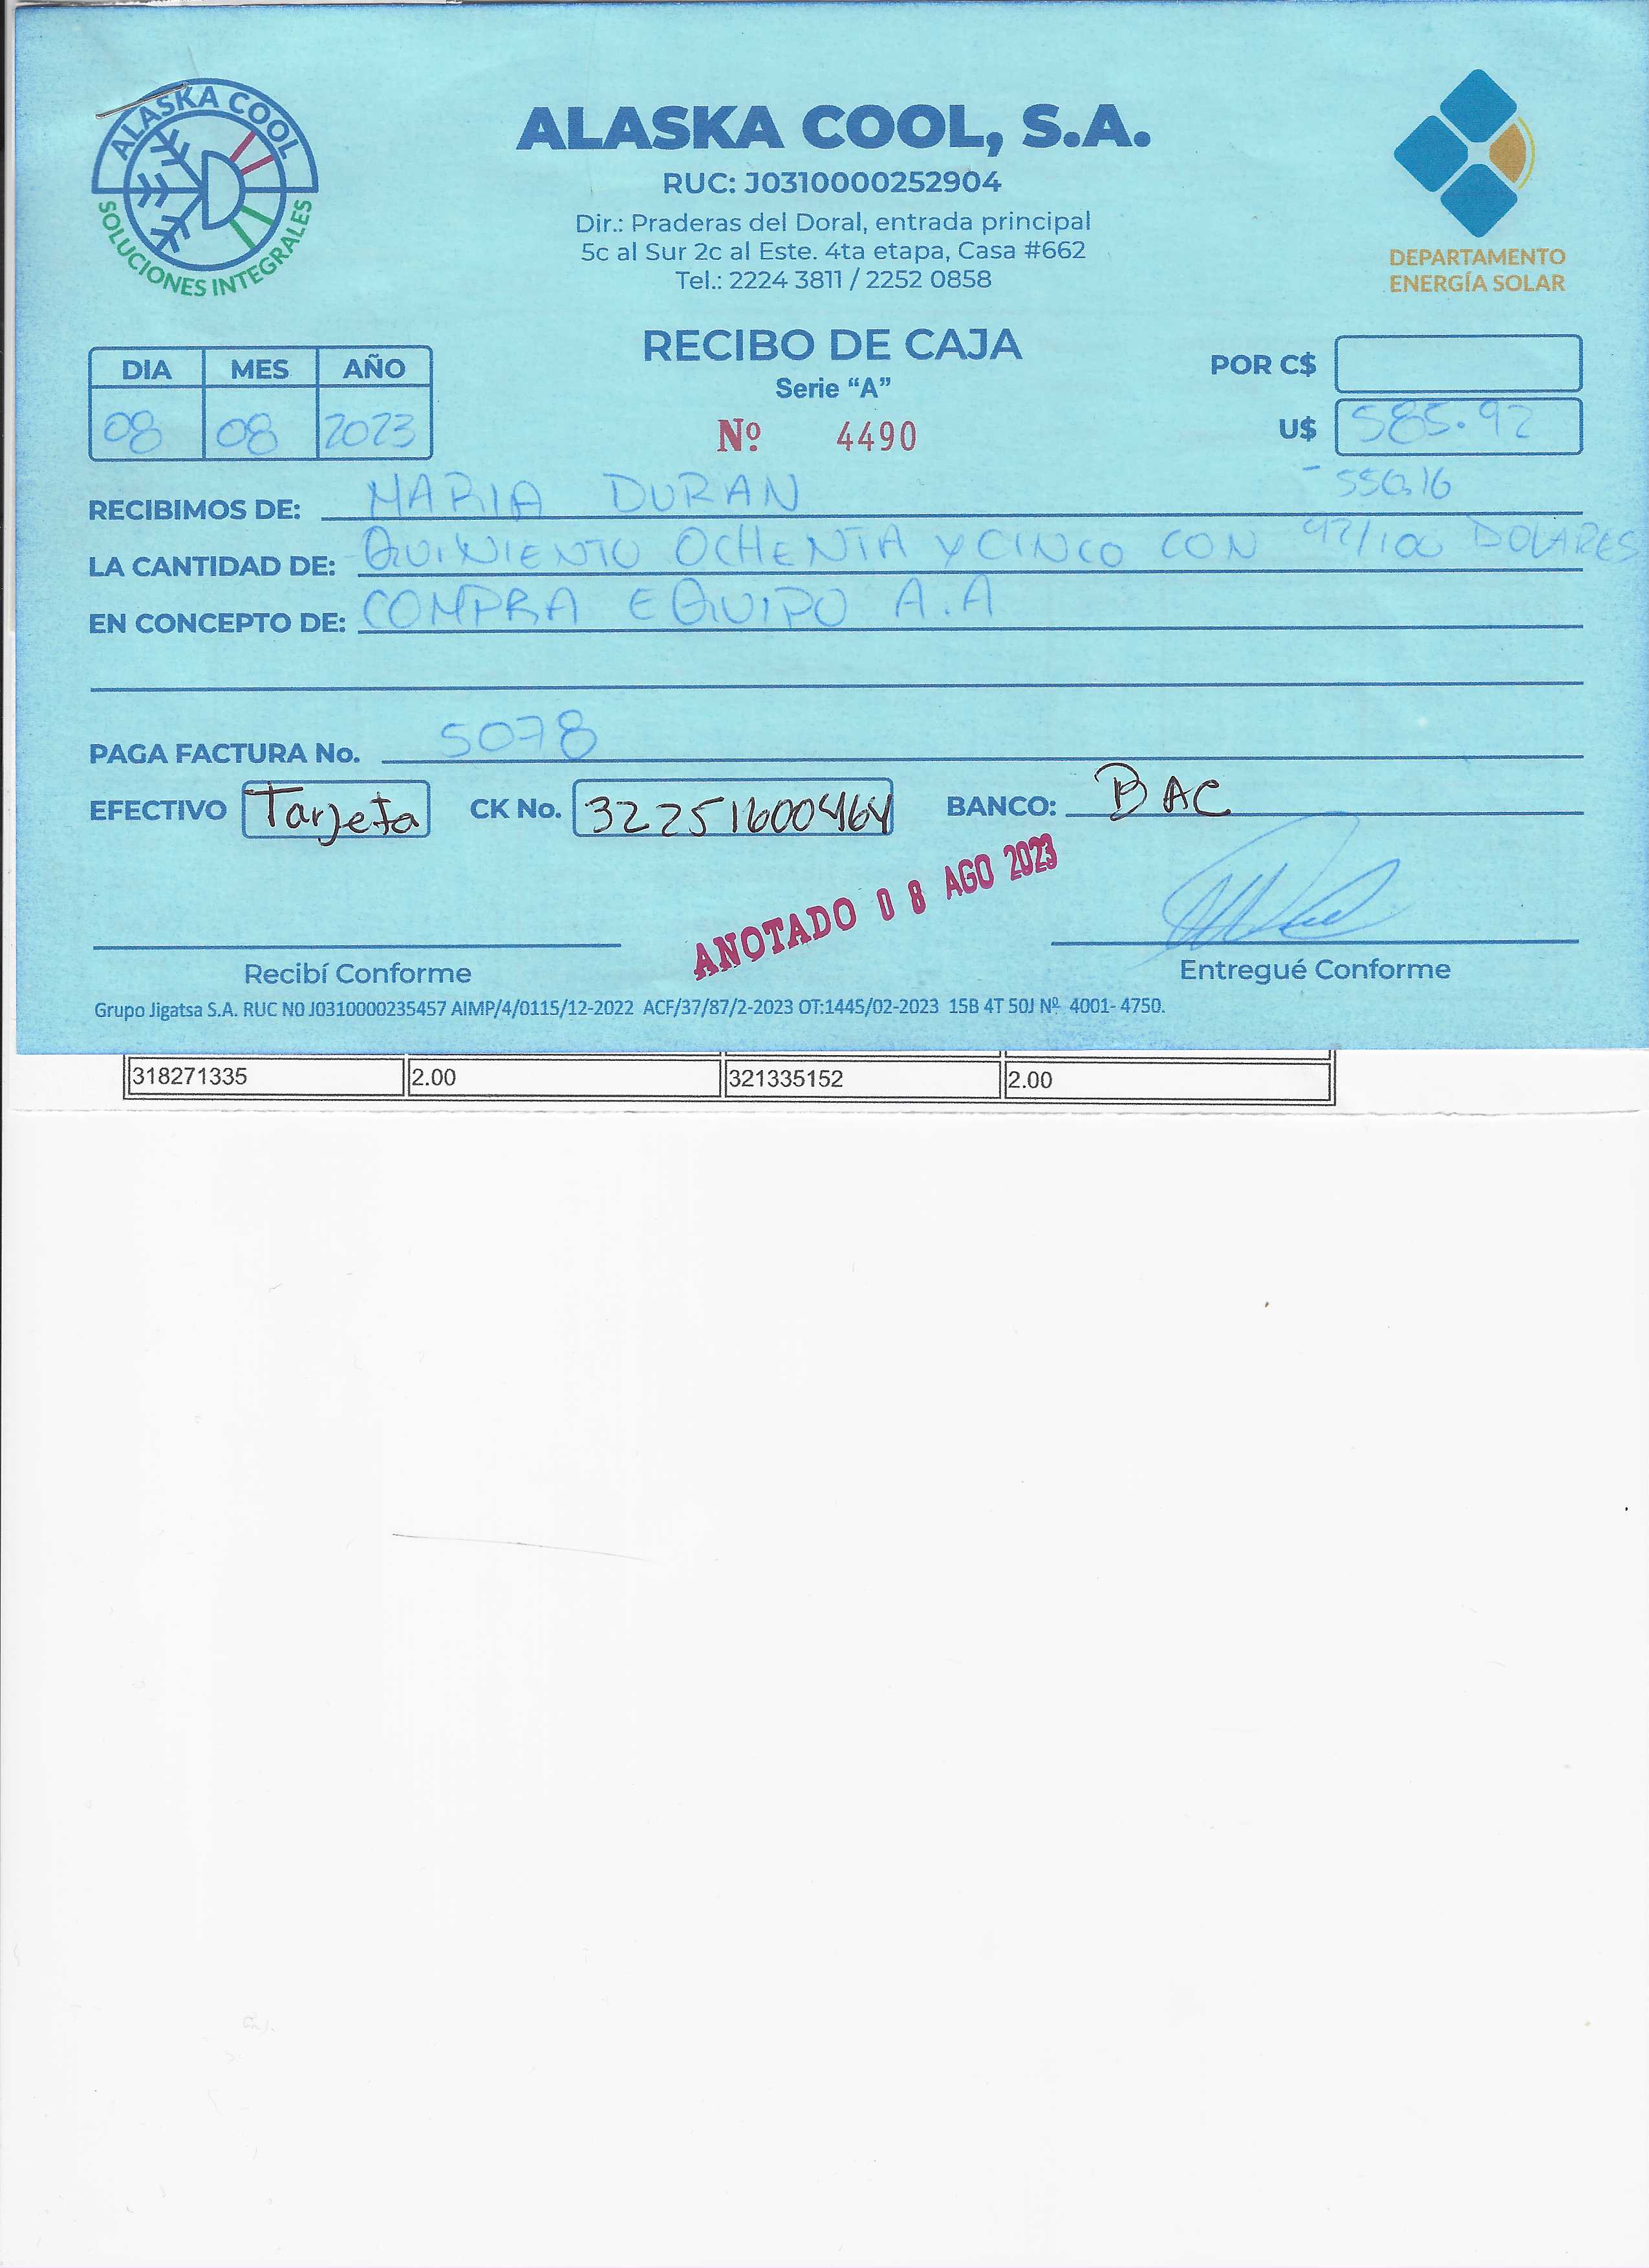 ALASKA COOL
SOLUCIONES INTEGRALES
ALASKA COOL, S.A.
RUC: J0310000252904
Dir.: Praderas del Doral, entrada principal
5c al Sur 2c al Este. 4ta etapa, Casa #662
Tel.: 2224 3811 / 2252 0858
DEPARTAMENTO
ENERGÍA SOLAR
RECIBO DE CAJA
Serie “A”
Nº 4490
DIA MES AÑO
08 08 2023
POR C$
U$ 585.92
- 550.16
RECIBIMOS DE: MARIA DURAN
LA CANTIDAD DE: QUINIENTO OCHENTA Y CINCO CON 92/100 DOLARES
EN CONCEPTO DE: COMPRA EQUIPO A.A
PAGA FACTURA No. 5078
EFECTIVO Tarjeta CK No. 32251600464 BANCO: BAC
ANOTADO 08 AGO 2023
Recibí Conforme Entregué Conforme
Grupo Jigatsa S.A. RUC N0 J0310000235457 AIMP/4/0115/12-2022 ACF/37/87/2-2023 OT:1445/02-2023 15B 4T 50J Nº 4001- 4750.
318271335 2.00 321335152 2.00